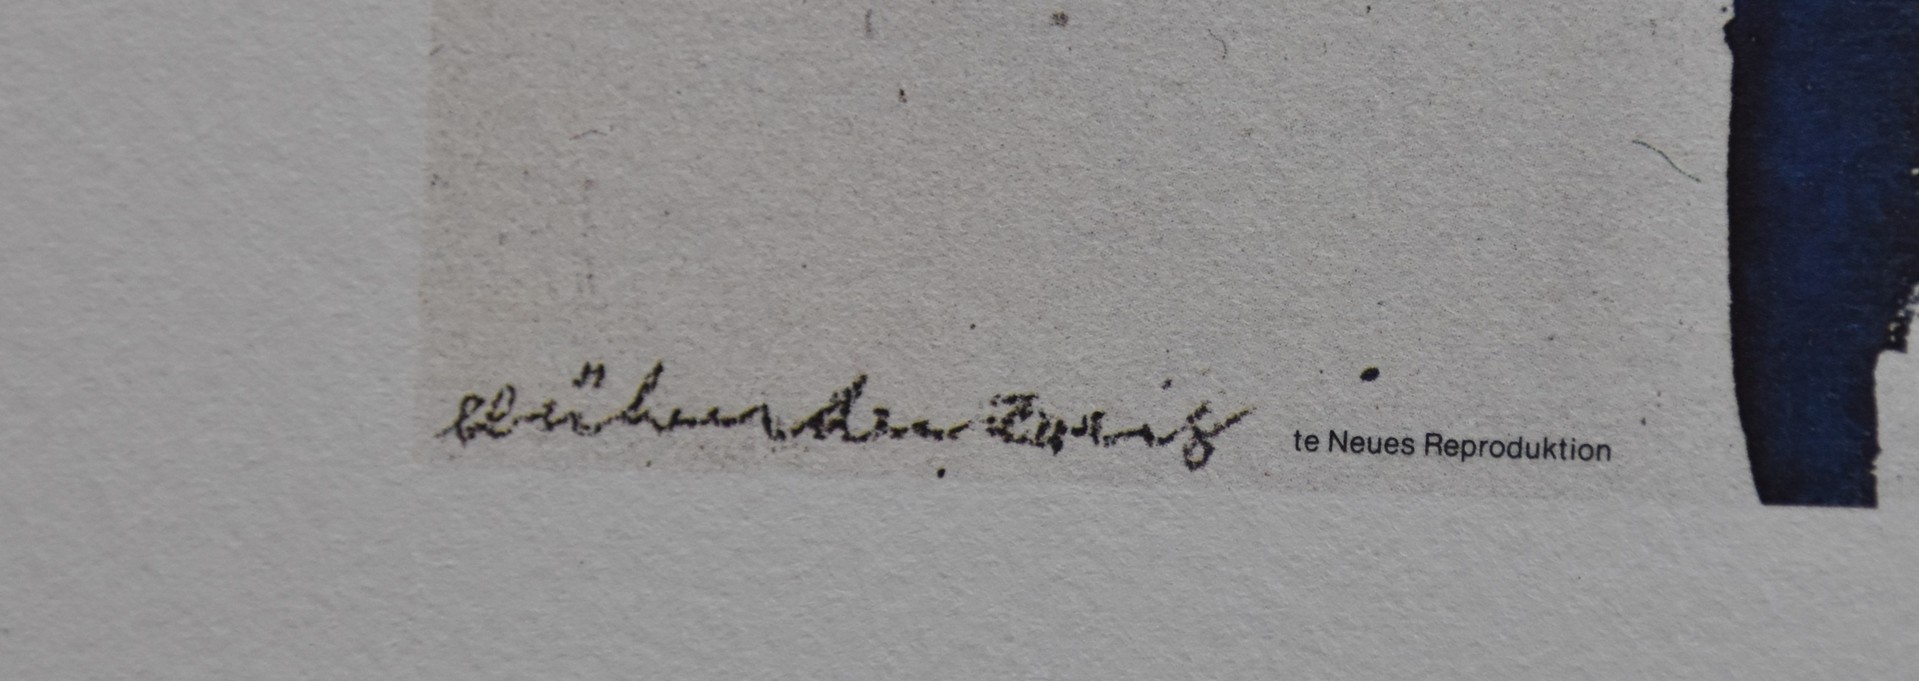 blühender Zweig te Neues Reproduktion